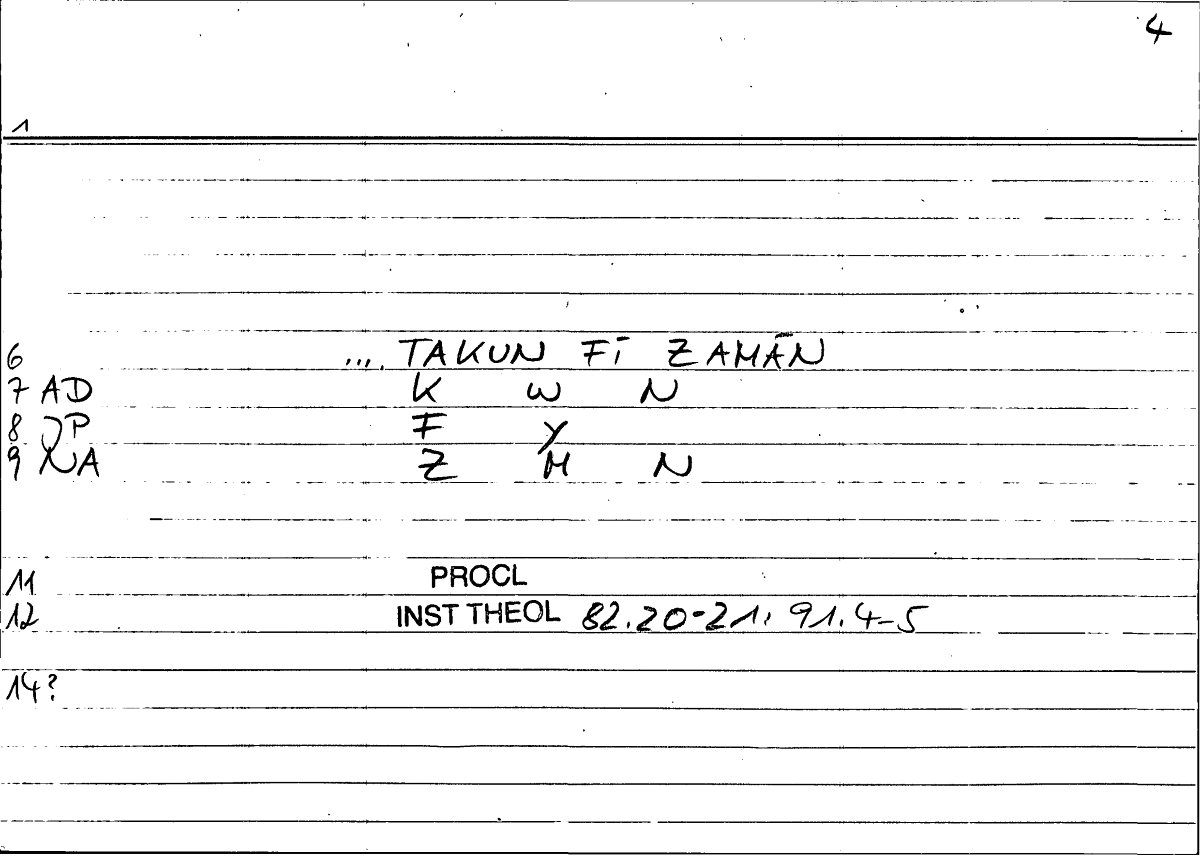 4
1
6 .... TAKUN FĪ ZAMĀN
7 AD K W N
8 JP F Y
9 NA Z M N
11 PROCL
12 INST THEOL 82.20-21, 91.4-5
14?